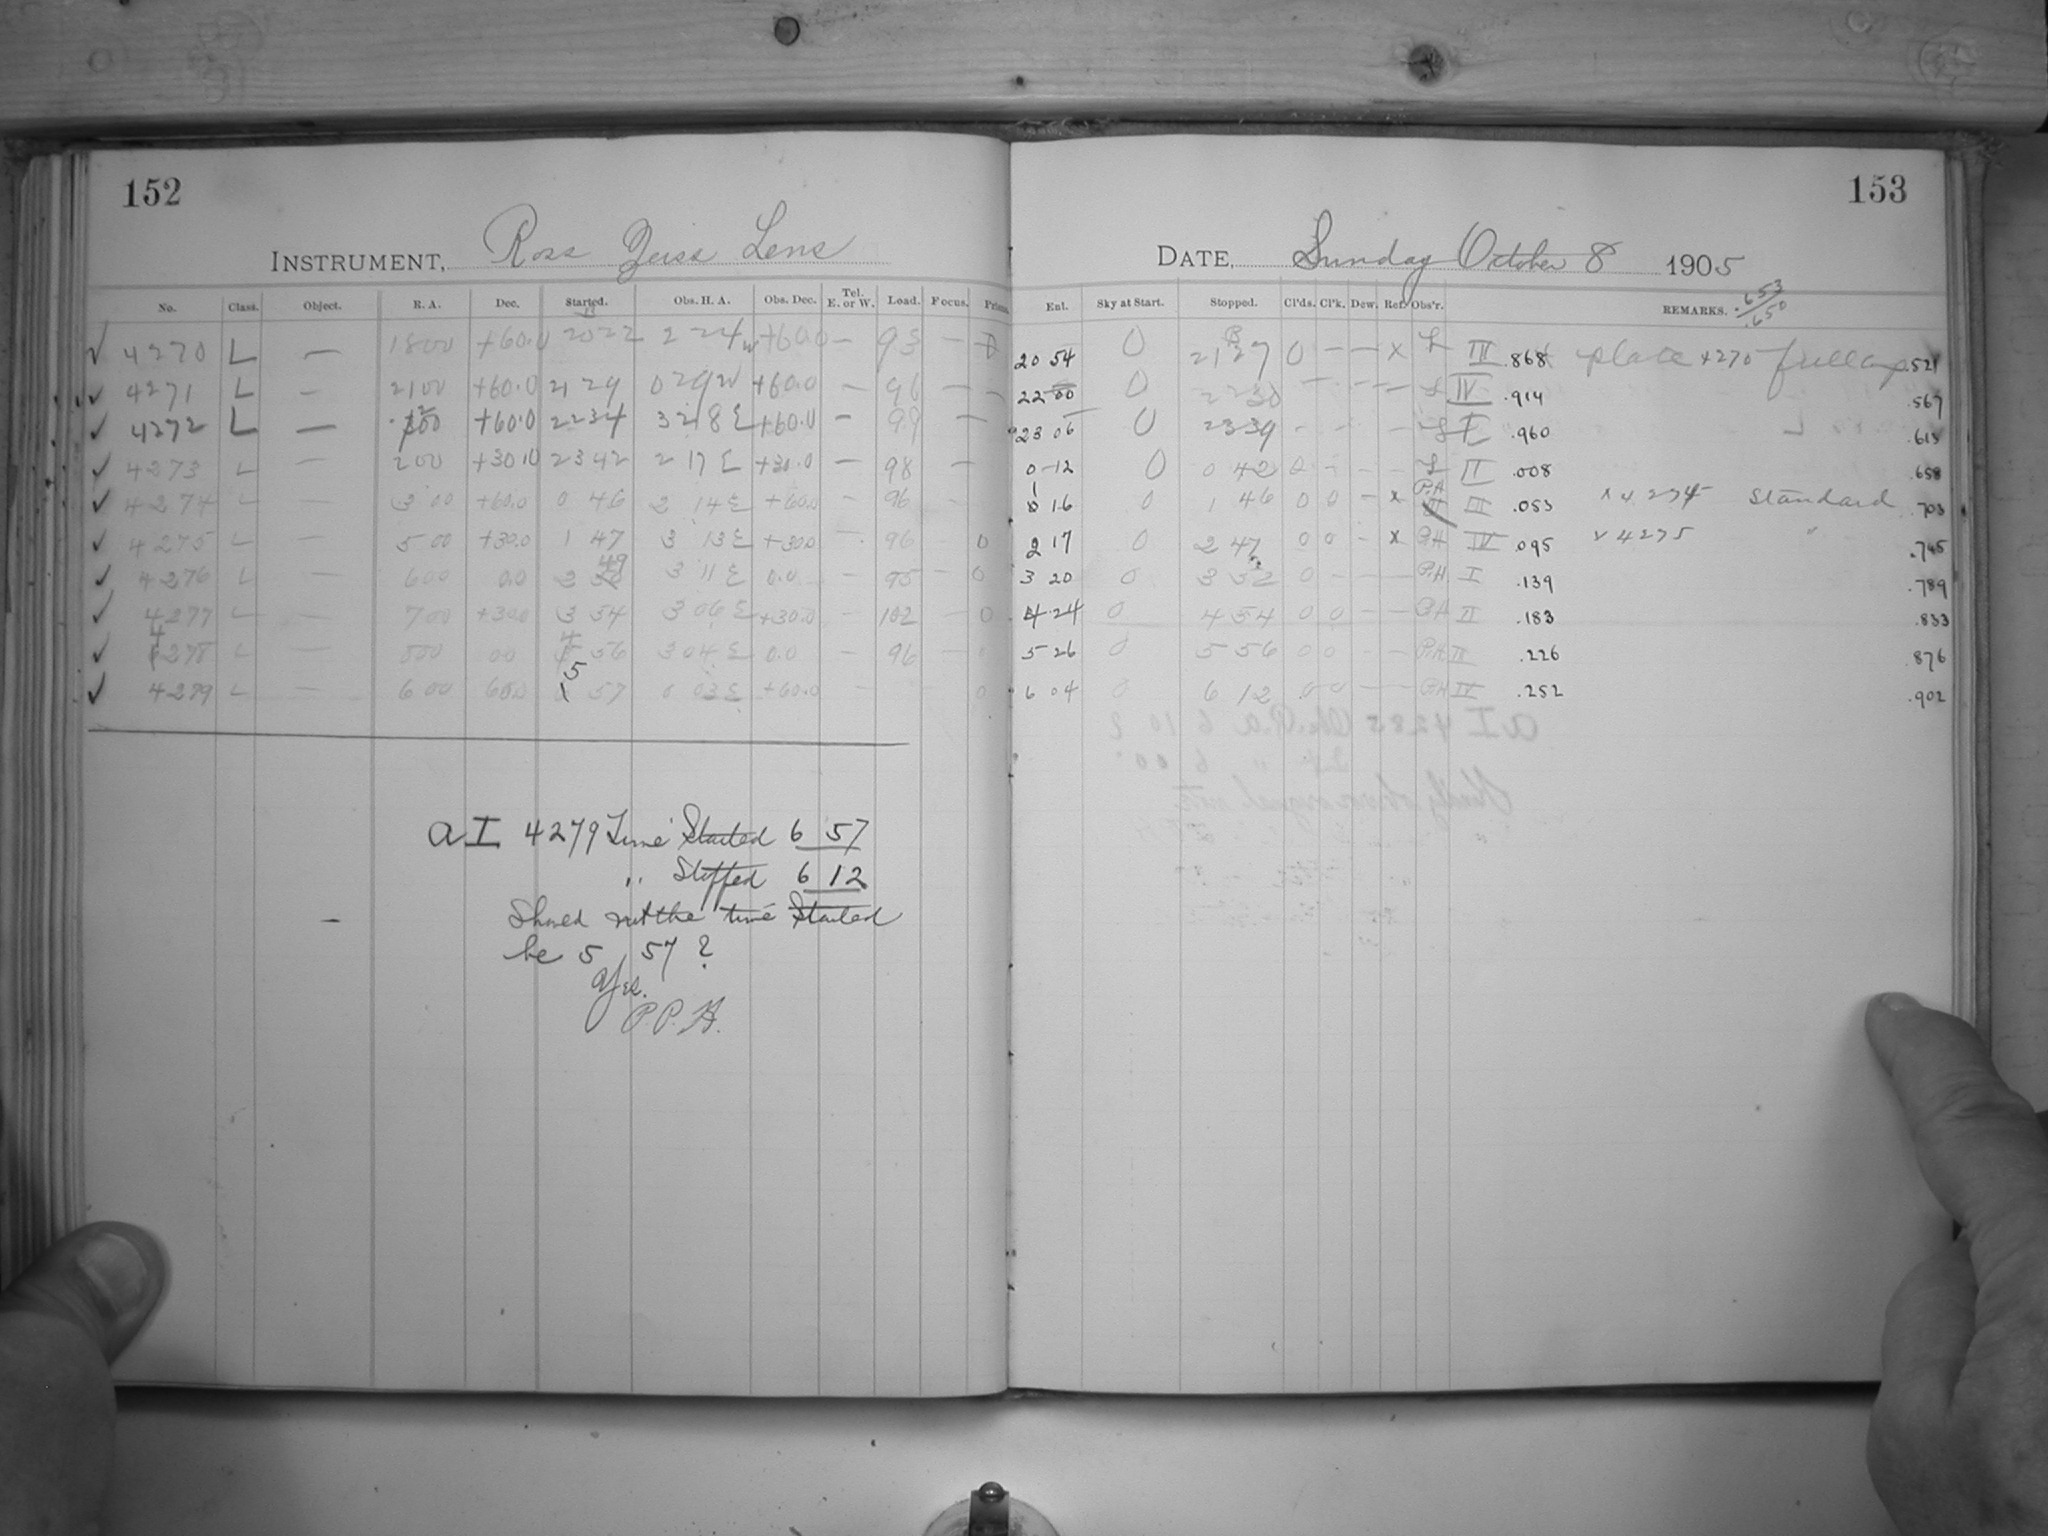 152
INSTRUMENT, Ross Zeiss Lens
No. Class. Object. R. A. Dec. Started. Obs. H. A. Obs. Dec. Tel. E. or W. Load. Focus. Prism.
4270 L — 1800 +60.0 20 22 2 24 w +60.0 — 93 —
4271 L — 2100 +60.0 21 29 0 29 W +60.0 — 96 — —
4272 L — +60.0 2234 3 28 E +60.0 — 99 —
4273 L — 200 +30.0 2342 2 17 E +30.0 — 98 —
4274 L — 3 00 +60.0 0 46 2 14 E +60.0 — 96 —
4275 L — 5 00 +30.0 1 47 3 13 E +30.0 — 96 — 0
4276 L — 600 0.0 2 49 3 11 E 0.0 — 95 — 0
4277 L — 700 +30.0 3 54 3 06 E +30.0 — 102 — 0
4278 L — 800 00 4 56 3 04 E 0.0 — 96 —
4279 L — 6 00 600 5 57 0 03 E +60.0 — 0
a I 4279 Time Started 6 57
" Stopped 6 12
Should not the time Started
be 5 57 ?
Yes.
P.P.H.
153
DATE, Sunday October 8 1905
Ent. Sky at Start. Stopped. Cl'ds. Cl'k. Dew. Ref. Obs'r. REMARKS. .653 .650
20 54 0 21 27 0 — — x L III .868 plate 4270 .521
22 00 0 2230 — — — L IV .914 .567
23 06 0 2339 - - — L I .960 .613
0 12 0 0 42 0 - — L II .008 .658
1 16 0 1 46 0 0 - x P.H III .053 x 4274 Standard .703
2 17 0 2 47 0 0 - x P.H IV .095 x 4275 " .745
3 20 0 3 52 0 - - — P.H I .139 .789
4 24 0 4 54 0 0 — — P.H II .183 .833
5 26 0 5 56 0 0 — — P.H III .226 .876
6 04 0 6 12 0 0 — — P.H IV .252 .902